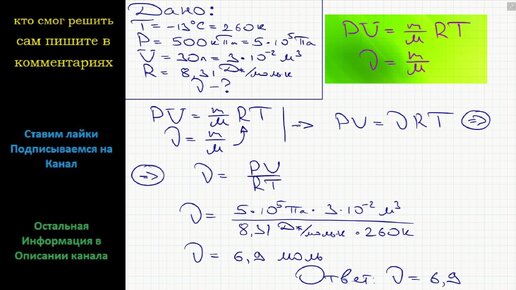 кто смог решить
сам пишите в
комментариях
Ставим лайки
Подписываемся на
Канал
Остальная
Информация в
Описании канала
Дано:
T = -13°C = 260К
P = 500кПа = 5·10⁵Па
V = 30л = 3·10⁻² м³
R = 8,31 Дж/моль·К
ν - ?
PV = m/M RT
ν = m/M
PV = m/M RT
ν = m/M
→ PV = νRT ⇒
⇒ ν = PV/RT
ν = 5·10⁵Па · 3·10⁻² м³ / 8,31 Дж/моль·К · 260К
ν = 6,9 моль
Ответ: ν = 6,9